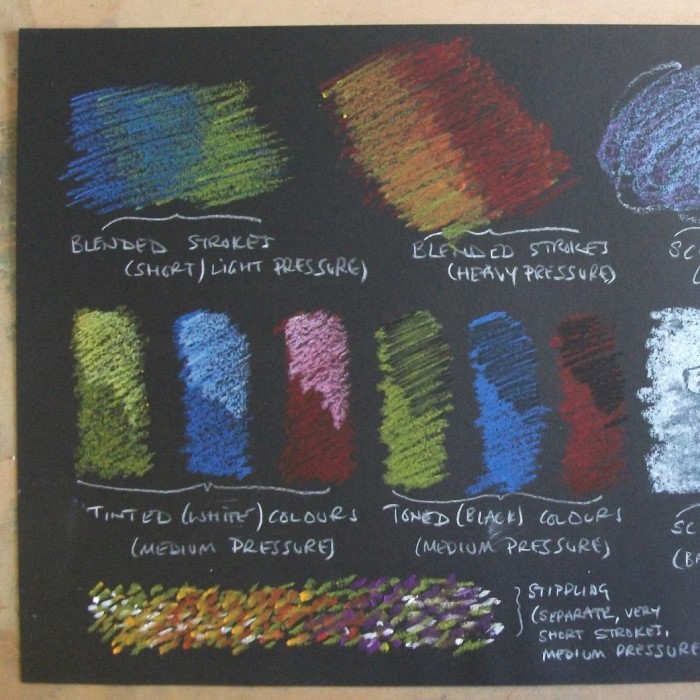 BLENDED STROKES
(SHORT) LIGHT PRESSURE)
BLENDED STROKES
(HEAVY PRESSURE)
SC
(
TINTED (WHITE) COLOURS
(MEDIUM PRESSURE)
TONED (BLACK) COLOURS
(MEDIUM PRESSURE)
SC
(BA
STIPPLING
(SEPARATE, VERY
SHORT STROKES,
MEDIUM PRESSURE